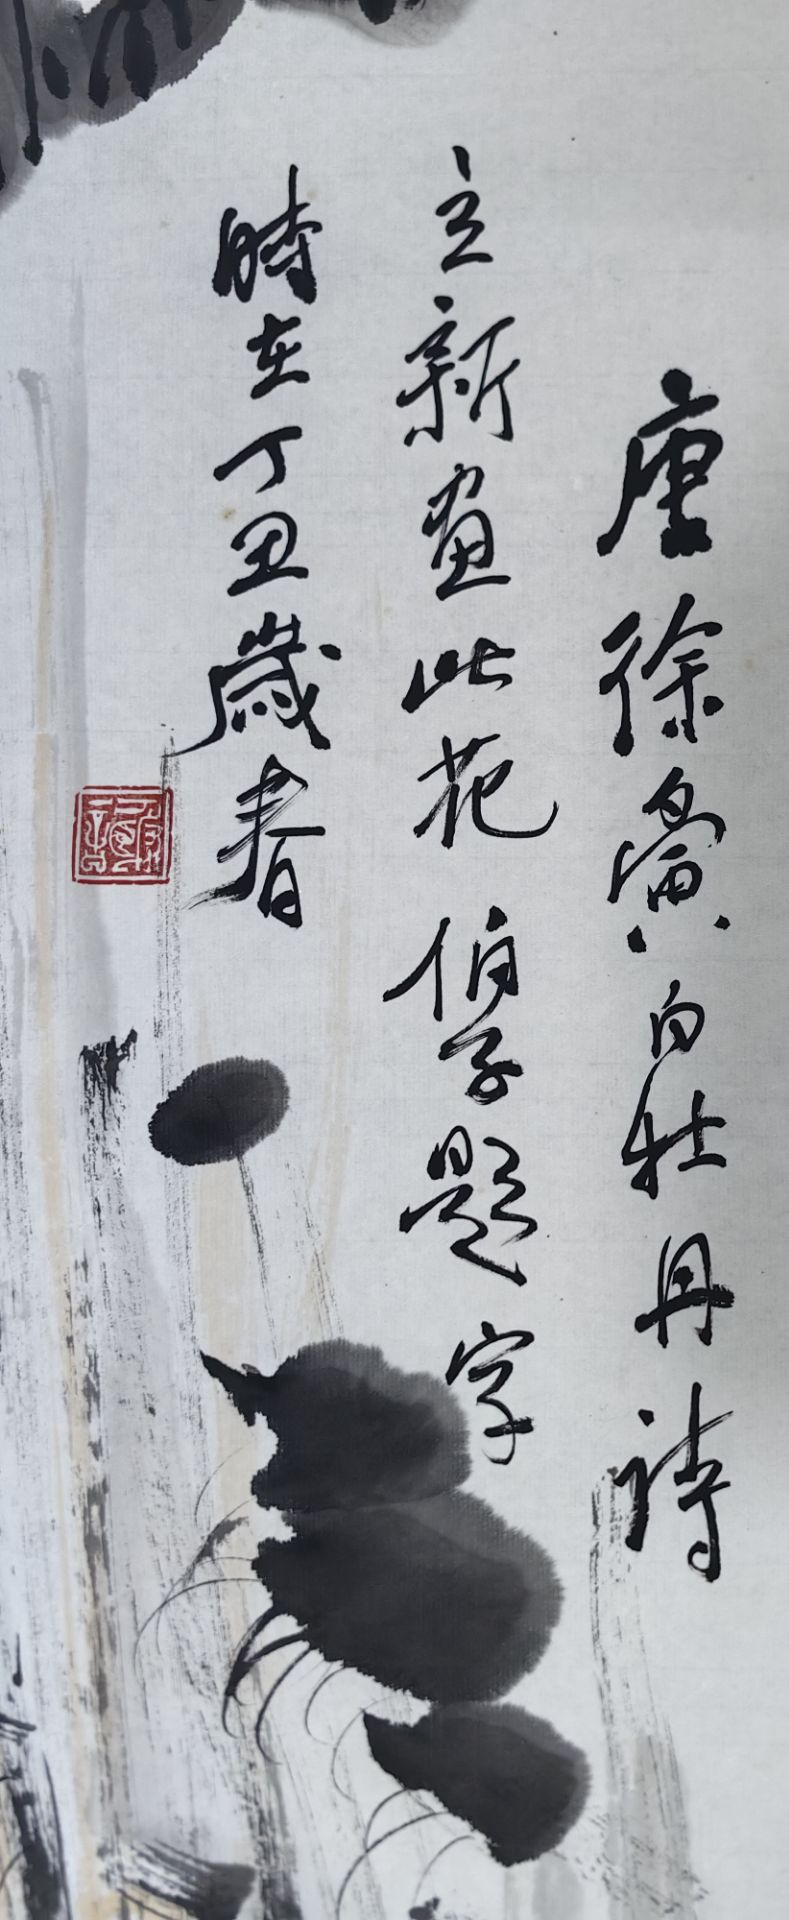 唐徐夤白牡丹詩
立新画此花伯孚題字
時在丁丑歲春